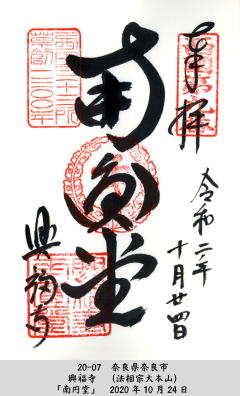 奉拝
令和二年
十月廿四日
南円堂
西国三十三所
草創一三〇〇年
興福寺
20-07　奈良県奈良市
興福寺　（法相宗大本山）
「南円堂」　2020年10月24日